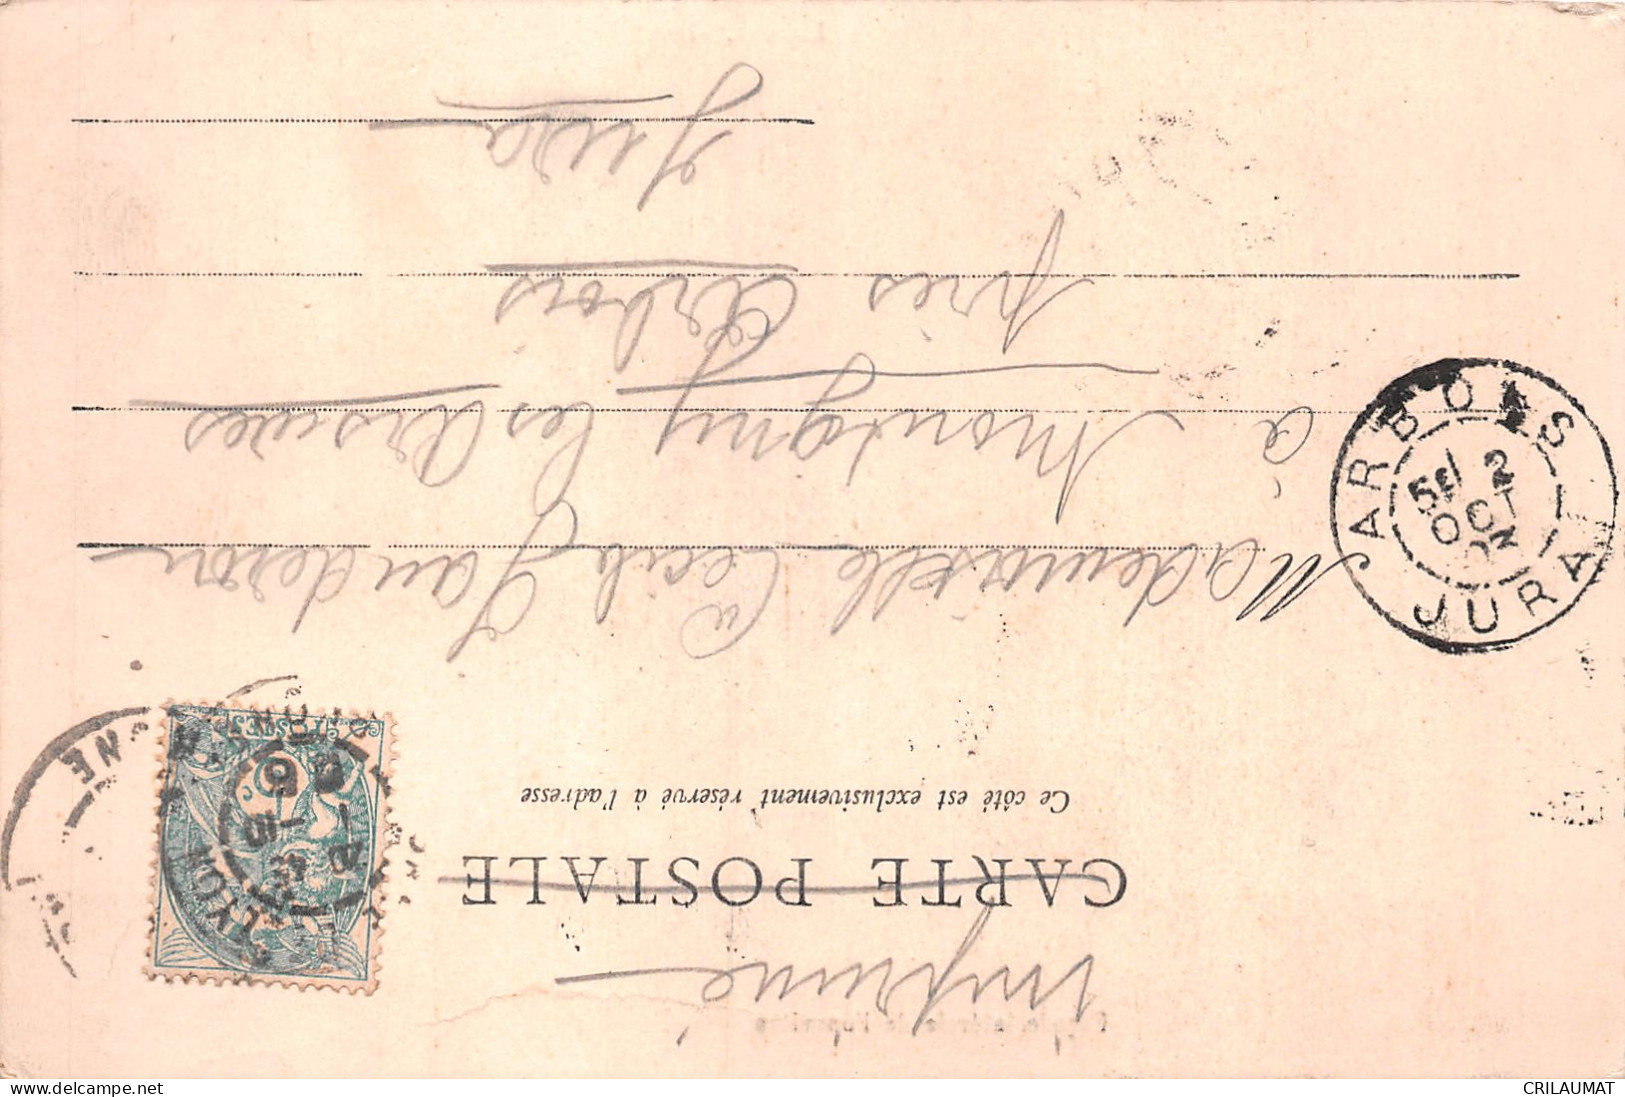 imprimé
CARTE POSTALE
Ce côté est exclusivement réservé à l'adresse
POSTES
5
LYON
Mademoiselle Cécile Jauderon
à Montigny les Arsures
près Arbois
Jura
ARBOIS
2
OCT
JURA
www.delcampe.net
CRILAUMAT